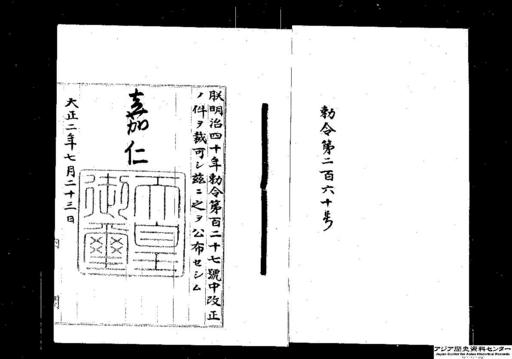 勅令第二百六十号
朕明治四十年勅令第百二十七號中改正
ノ件ヲ裁可シ茲ニ之ヲ公布セシム
嘉仁
天皇
御璽
大正二年七月二十三日
内閣
アジア歴史資料センター
Japan Center for Asian Historical Records